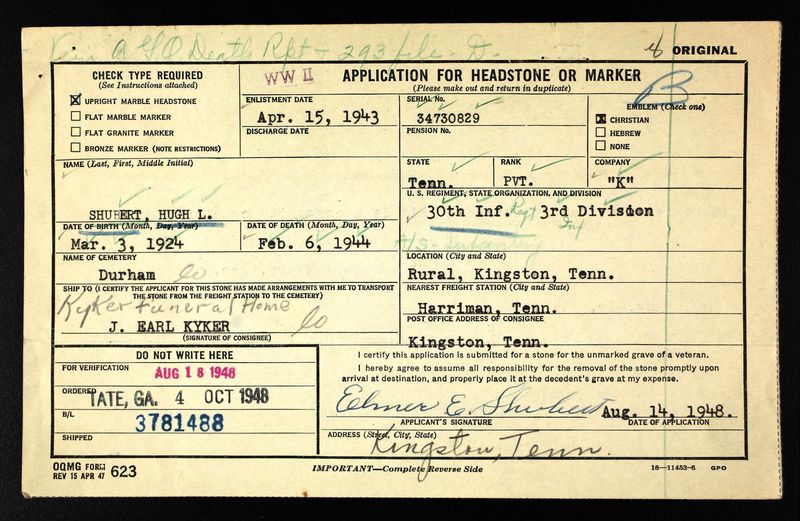 Via AGO Death Rpt + 293 file - D.
ORIGINAL
CHECK TYPE REQUIRED
(See Instructions attached)
WW II
APPLICATION FOR HEADSTONE OR MARKER
(Please make out and return in duplicate)
UPRIGHT MARBLE HEADSTONE
FLAT MARBLE MARKER
FLAT GRANITE MARKER
BRONZE MARKER (NOTE RESTRICTIONS)
ENLISTMENT DATE
Apr. 15, 1943
DISCHARGE DATE
SERIAL No.
34730829
PENSION No.
B
EMBLEM (Check one)
CHRISTIAN
HEBREW
NONE
NAME (Last, First, Middle Initial)
SHUBERT, HUGH L.
STATE
Tenn.
RANK
PVT.
COMPANY
"K"
U. S. REGIMENT, STATE ORGANIZATION, AND DIVISION
30th Inf. Regt 3rd Division
Inf
A/S - Infantry
DATE OF BIRTH (Month, Day, Year)
Mar. 3, 1924
DATE OF DEATH (Month, Day, Year)
Feb. 6, 1944
NAME OF CEMETERY
Durham
LOCATION (City and State)
Rural, Kingston, Tenn.
SHIP TO (I CERTIFY THE APPLICANT FOR THIS STONE HAS MADE ARRANGEMENTS WITH ME TO TRANSPORT
THE STONE FROM THE FREIGHT STATION TO THE CEMETERY)
Kyker Funeral Home
J. EARL KYKER
(SIGNATURE OF CONSIGNEE)
NEAREST FREIGHT STATION (City and State)
Harriman, Tenn.
POST OFFICE ADDRESS OF CONSIGNEE
Kingston, Tenn.
DO NOT WRITE HERE
FOR VERIFICATION
AUG 18 1948
ORDERED
TATE, GA. 4 OCT 1948
B/L
3781488
SHIPPED
I certify this application is submitted for a stone for the unmarked grave of a veteran.
I hereby agree to assume all responsibility for the removal of the stone promptly upon
arrival at destination, and properly place it at the decedent's grave at my expense.
Elmer E. Shubert Aug. 14, 1948.
APPLICANT'S SIGNATURE
DATE OF APPLICATION
ADDRESS (Street, City, State)
Kingston, Tenn.
OQMG FORM
REV 15 APR 47
623
IMPORTANT—Complete Reverse Side
16—11453-6 GPO